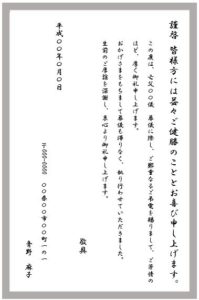 謹啓 皆様方には益々ご健勝のこととお喜び申し上げます。
この度は、亡父〇〇儀 葬儀に際し、ご鄭重なるご弔電を賜りまして、ご芳情の
ほど、厚く御礼申し上げます。
おかげさまをもちまして葬儀も滞りなく、執り行わせていただきました。
生前のご厚誼を深謝し、衷心より御礼申し上げます。
敬具
平成〇〇年〇月〇日
〇〇県〇〇市〇〇町一の一
青野 麻子